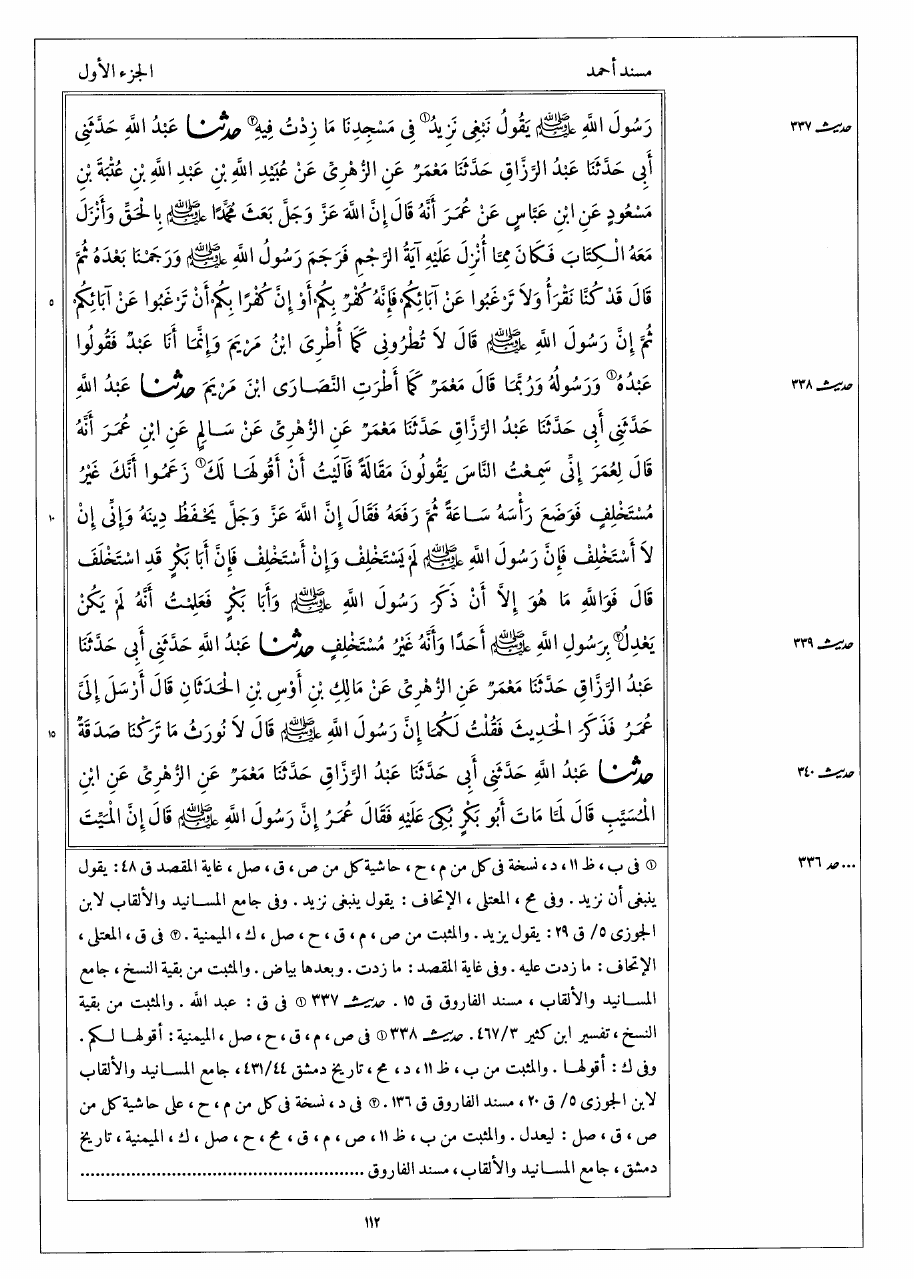 مسند أحمد الجزء الأول
رَسُولَ اللَّهِ ﷺ يَقُولُ نَبْغِى نَزِيدُ① فِى مَسْجِدِنَا مَا زِدْتُ فِيهِ② حدثنا عَبْدُ اللَّهِ حَدَّثَنِى
حديث ٣٣٧
أَبِى حَدَّثَنَا عَبْدُ الرَّزَّاقِ حَدَّثَنَا مَعْمَرٌ عَنِ الزُّهْرِىِّ عَنْ عُبَيْدِ اللَّهِ بْنِ عَبْدِ اللَّهِ بْنِ عُتْبَةَ بْنِ
مَسْعُودٍ عَنِ ابْنِ عَبَّاسٍ عَنْ عُمَرَ أَنَّهُ قَالَ إِنَّ اللَّهَ عَزَّ وَجَلَّ بَعَثَ مُحَمَّدًا ﷺ بِالْحَقِّ وَأَنْزَلَ
مَعَهُ الْكِتَابَ فَكَانَ مِمَّا أُنْزِلَ عَلَيْهِ آيَةُ الرَّجْمِ فَرَجَمَ رَسُولُ اللَّهِ ﷺ وَرَجَمْنَا بَعْدَهُ ثُمَّ
قَالَ قَدْ كُنَّا نَقْرَأُ وَلاَ تَرْغَبُوا عَنْ آبَائِكُمْ فَإِنَّهُ كُفْرٌ بِكُمْ أَوْ إِنَّ كُفْرًا بِكُمْ أَنْ تَرْغَبُوا عَنْ آبَائِكُمْ
٥
ثُمَّ إِنَّ رَسُولَ اللَّهِ ﷺ قَالَ لاَ تُطْرُونِى كَمَا أُطْرِىَ ابْنُ مَرْيَمَ وَإِنَّمَا أَنَا عَبْدٌ فَقُولُوا
عَبْدُهُ① وَرَسُولُهُ وَرُبَّمَا قَالَ مَعْمَرٌ كَمَا أَطْرَتِ النَّصَارَى ابْنَ مَرْيَمَ حدثنا عَبْدُ اللَّهِ
حديث ٣٣٨
حَدَّثَنِى أَبِى حَدَّثَنَا عَبْدُ الرَّزَّاقِ حَدَّثَنَا مَعْمَرٌ عَنِ الزُّهْرِىِّ عَنْ سَالِمٍ عَنِ ابْنِ عُمَرَ أَنَّهُ
قَالَ لِعُمَرَ إِنِّى سَمِعْتُ النَّاسَ يَقُولُونَ مَقَالَةً فَآلَيْتُ أَنْ أَقُولَهَا لَكَ① زَعَمُوا أَنَّكَ غَيْرُ
مُسْتَخْلِفٍ فَوَضَعَ رَأْسَهُ سَاعَةً ثُمَّ رَفَعَهُ فَقَالَ إِنَّ اللَّهَ عَزَّ وَجَلَّ يَحْفَظُ دِينَهُ وَإِنِّى إِنْ
١٠
لاَ أَسْتَخْلِفْ فَإِنَّ رَسُولَ اللَّهِ ﷺ لَمْ يَسْتَخْلِفْ وَإِنْ أَسْتَخْلِفْ فَإِنَّ أَبَا بَكْرٍ قَدِ اسْتَخْلَفَ
قَالَ فَوَاللَّهِ مَا هُوَ إِلاَّ أَنْ ذَكَرَ رَسُولَ اللَّهِ ﷺ وَأَبَا بَكْرٍ فَعَلِمْتُ أَنَّهُ لَمْ يَكُنْ
يَعْدِلُ② بِرَسُولِ اللَّهِ ﷺ أَحَدًا وَأَنَّهُ غَيْرُ مُسْتَخْلِفٍ حدثنا عَبْدُ اللَّهِ حَدَّثَنِى أَبِى حَدَّثَنَا
حديث ٣٣٩
عَبْدُ الرَّزَّاقِ حَدَّثَنَا مَعْمَرٌ عَنِ الزُّهْرِىِّ عَنْ مَالِكِ بْنِ أَوْسِ بْنِ الْحَدَثَانِ قَالَ أَرْسَلَ إِلَىَّ
عُمَرُ فَذَكَرَ الْحَدِيثَ فَقُلْتُ لَكُمَا إِنَّ رَسُولَ اللَّهِ ﷺ قَالَ لاَ نُورَثُ مَا تَرَكْنَا صَدَقَةٌ
١٥
حدثنا عَبْدُ اللَّهِ حَدَّثَنِى أَبِى حَدَّثَنَا عَبْدُ الرَّزَّاقِ حَدَّثَنَا مَعْمَرٌ عَنِ الزُّهْرِىِّ عَنِ ابْنِ
حديث ٣٤٠
الْمُسَيَّبِ قَالَ لَمَّا مَاتَ أَبُو بَكْرٍ بُكِىَ عَلَيْهِ فَقَالَ عُمَرُ إِنَّ رَسُولَ اللَّهِ ﷺ قَالَ إِنَّ الْمَيِّتَ
① فى ب ، ظ ١١ ، د ، نسخة فى كل من م ، ح ، حاشية كل من ص ، ق ، صل ، غاية المقصد ق ٤٨ : يقول
... حد ٣٣٦
ينبغى أن نزيد . وفى مح ، المعتلى ، الإتحاف : يقول ينبغى نزيد . وفى جامع المسانيد والألقاب لابن
الجوزى ٥/ ق ٢٩ : يقول يزيد . والمثبت من ص ، م ، ق ، ح ، صل ، ك ، الميمنية . ② فى ق ، المعتلى ،
الإتحاف : ما زدت عليه . وفى غاية المقصد : ما زدت . وبعدها بياض . والمثبت من بقية النسخ ، جامع
المسانيد والألقاب ، مسند الفاروق ق ١٥ . حديث ٣٣٧ ① فى ق : عبد الله . والمثبت من بقية
النسخ ، تفسير ابن كثير ٤٦٧/٣ . حديث ٣٣٨ ① فى ص ، م ، ق ، ح ، صل ، الميمنية : أقولها لكم .
وفى ك : أقولها . والمثبت من ب ، ظ ١١ ، د ، مح ، تاريخ دمشق ٤٣١/٤٤ ، جامع المسانيد والألقاب
لابن الجوزى ٥/ ق ٢٠ ، مسند الفاروق ق ١٣٦ . ② فى د ، نسخة فى كل من م ، ح ، على حاشية كل من
ص ، ق ، صل : ليعدل . والمثبت من ب ، ظ ١١ ، ص ، م ، ق ، مح ، ح ، صل ، ك ، الميمنية ، تاريخ
دمشق ، جامع المسانيد والألقاب ، مسند الفاروق ..................................................
١١٢